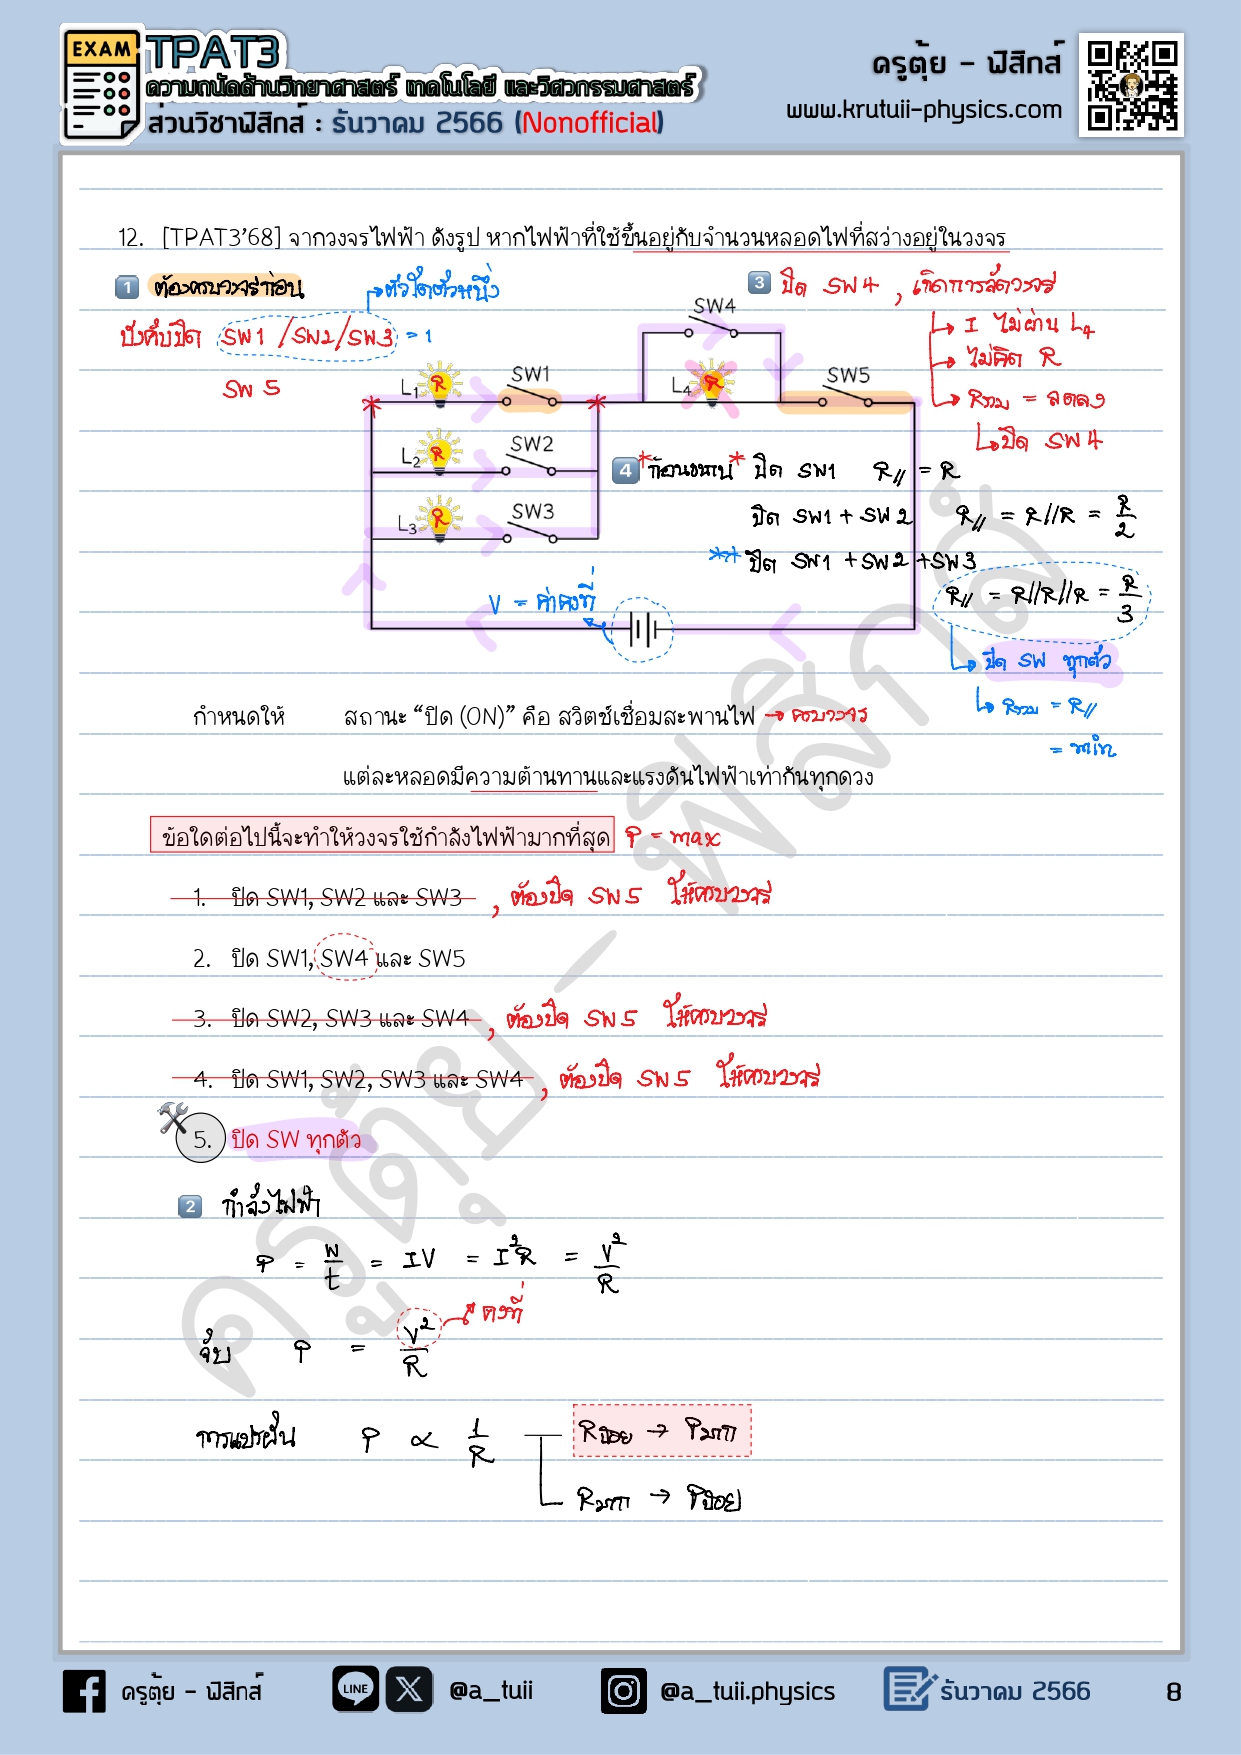 EXAM
TPAT3
ความถนัดด้านวิทยาศาสตร์ เทคโนโลยี และวิศวกรรมศาสตร์
ส่วนวิชาฟิสิกส์ : ธันวาคม 2566 (Nonofficial)
ครูตุ้ย - ฟิสิกส์
www.krutuii-physics.com
12. [TPAT3'68] จากวงจรไฟฟ้า ดังรูป หากไฟฟ้าที่ใช้ขึ้นอยู่กับจำนวนหลอดไฟที่สว่างอยู่ในวงจร
1 ต้องครบวงจรก่อน
ตัวใดตัวหนึ่ง
บังคับปิด SW1 /SW2/SW3 = 1
SW 5
3 ปิด SW4 , เกิดการลัดวงจร
I ไม่ผ่าน L4
ไม่คิด R
Rรวม = ลดลง
ปิด SW4
SW4
L1 R SW1
L4 R SW5
L2 R SW2
L3 R SW3
4 *ก้อนขนาน* ปิด SW1 R// = R
ปิด SW1 + SW2 R// = R//R = R/2
** ปิด SW1 + SW2 + SW3
R// = R//R//R = R/3
V = ค่าคงที่
ปิด SW ทุกตัว
Rรวม = R//
= min
กำหนดให้ สถานะ “ปิด (ON)” คือ สวิตช์เชื่อมสะพานไฟ → ครบวงจร
แต่ละหลอดมีความต้านทานและแรงดันไฟฟ้าเท่ากันทุกดวง
ข้อใดต่อไปนี้จะทำให้วงจรใช้กำลังไฟฟ้ามากที่สุด P = max
1. ปิด SW1, SW2 และ SW3 , ต้องปิด SW5 ให้ครบวงจร
2. ปิด SW1, SW4 และ SW5
3. ปิด SW2, SW3 และ SW4 , ต้องปิด SW5 ให้ครบวงจร
4. ปิด SW1, SW2, SW3 และ SW4 , ต้องปิด SW5 ให้ครบวงจร
5. ปิด SW ทุกตัว
2 กำลังไฟฟ้า
P = W/t = IV = I²R = V²/R
คงที่
จับ P = V²/R
การแปรผัน P ∝ 1/R
Rน้อย → Pมาก
Rมาก → Pน้อย
ครูตุ้ย - ฟิสิกส์
ครูตุ้ย - ฟิสิกส์
LINE
X
@a_tuii
@a_tuii.physics
ธันวาคม 2566
8